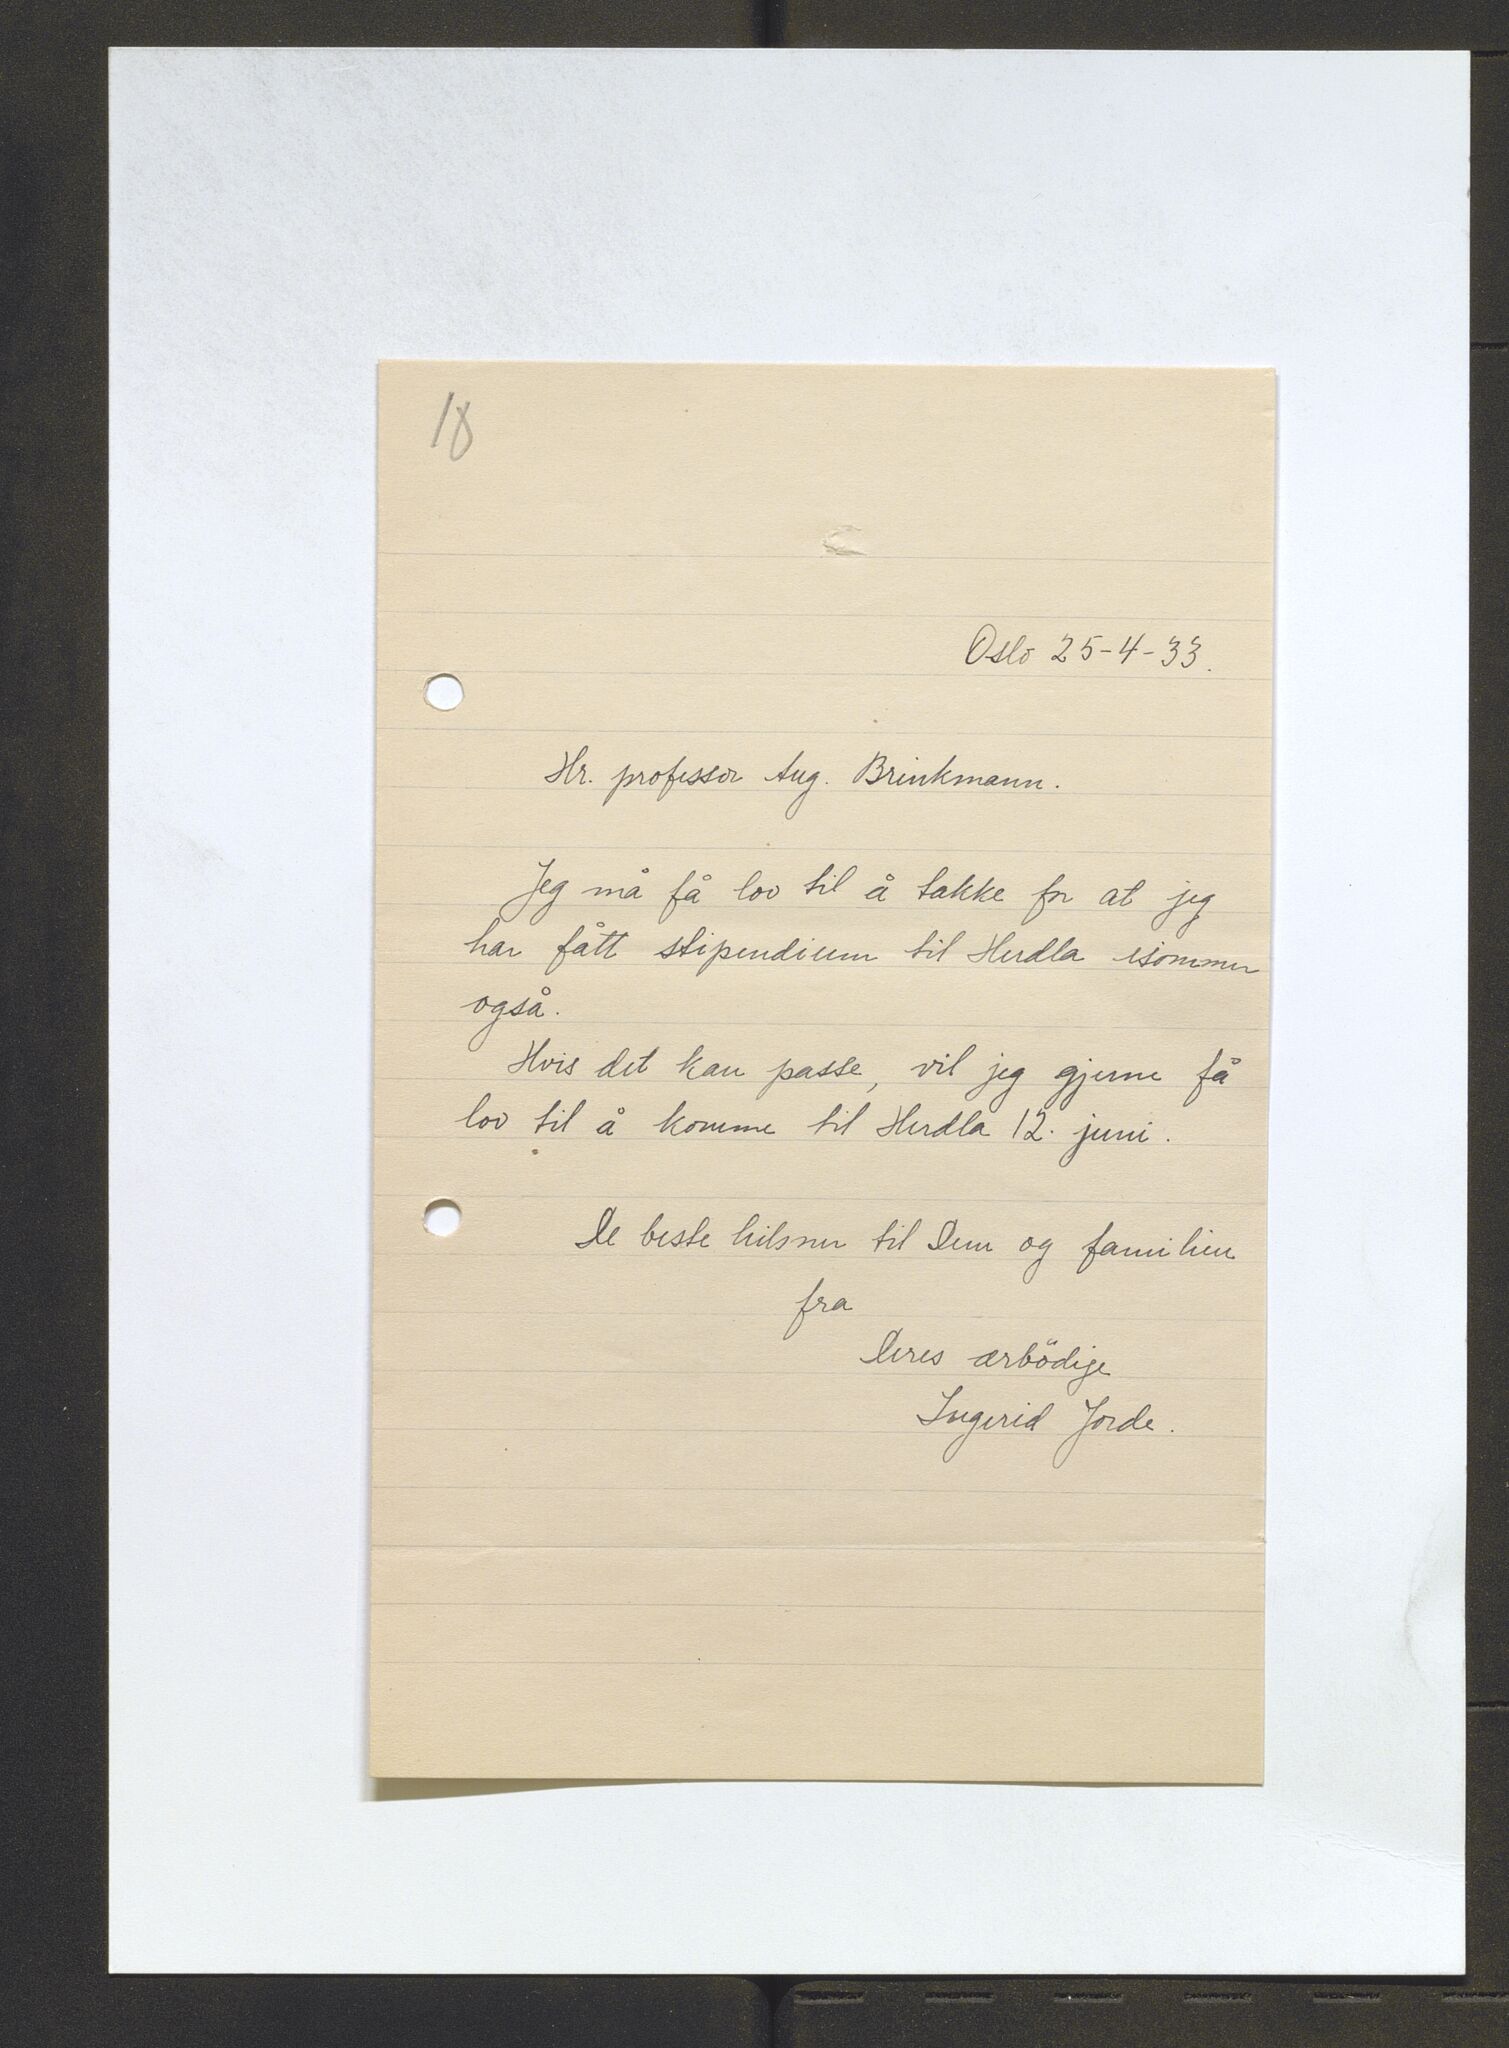 18
Oslo 25-4-33.
Hr. professor Aug. Brinkmann.
Jeg må få lov til å takke for at jeg
har fått stipendium til Herdla isommer
også.
Hvis det kan passe, vil jeg gjerne få
lov til å komme til Herdla 12. juni.
De beste hilsner til Dem og familien
fra
Deres ærbödige
Ingerid Jorde.